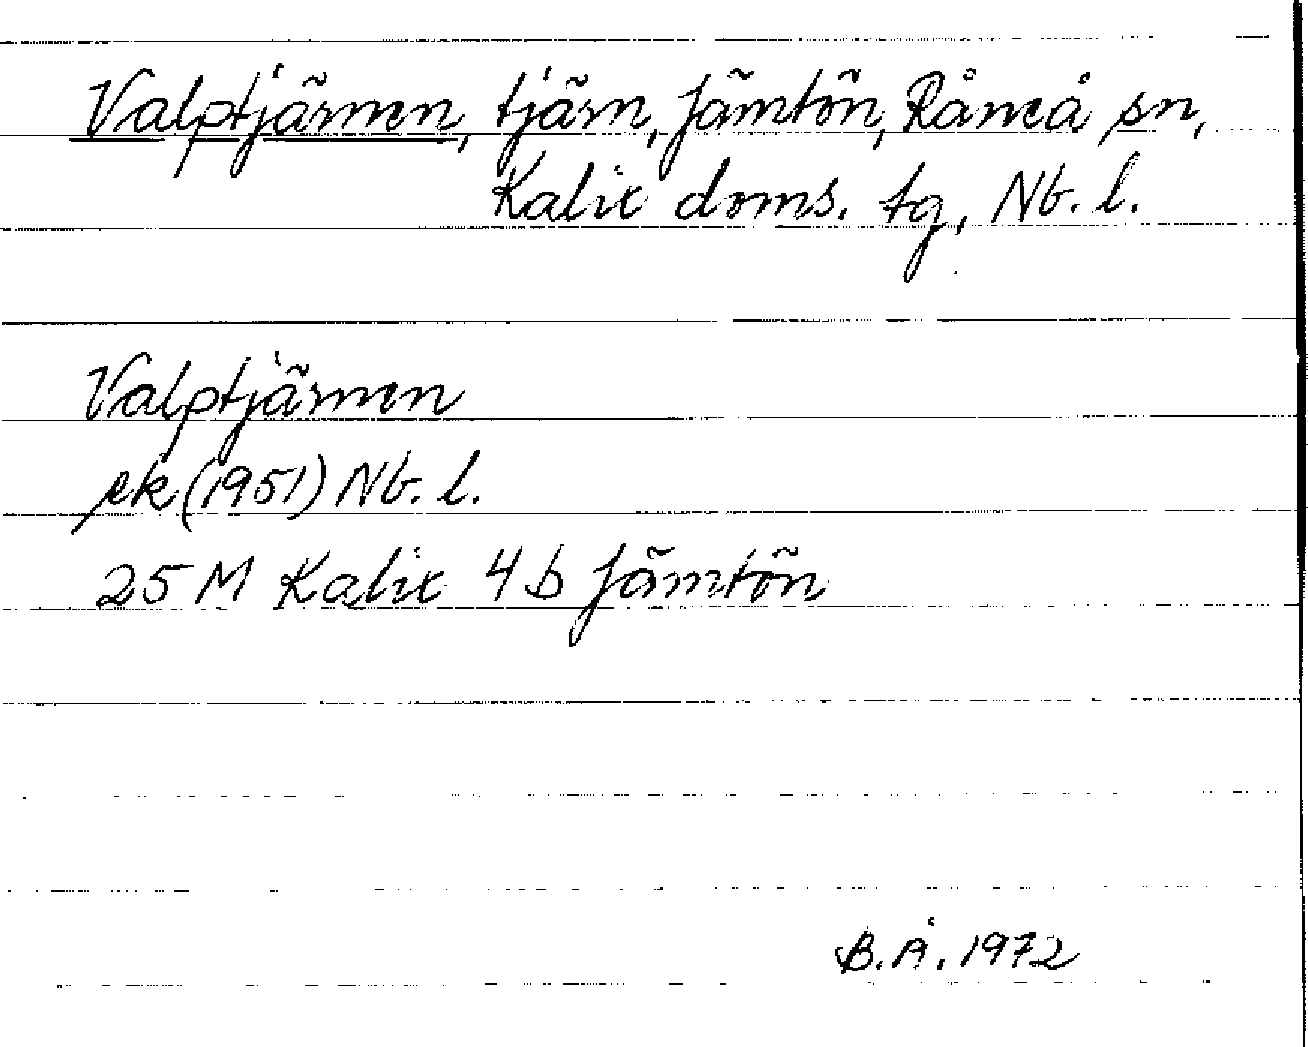 Valptjärnen, tjärn, Jämtön, Råneå sn,
Kalix doms. tg, Nb. l.
Valptjärnen
ek (1951) Nb. l.
25 M Kalix 4 b Jämtön
B.Å. 1972